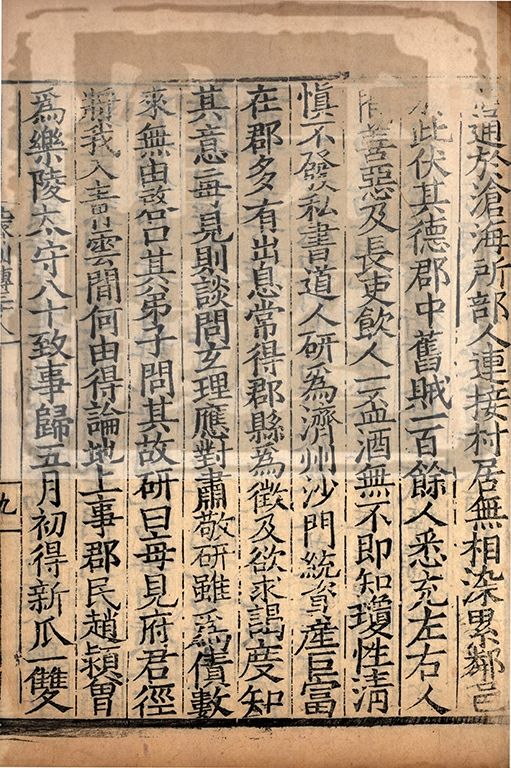 通於滄海所部人連接村居無相染累鄰邑
於此伏其德郡中舊賊一百餘人悉充左右人
間善惡及長吏飲人一盃酒無不即知瓊性清
慎不發私書道人研為濟州沙門統資產巨富
在郡多有出息常得郡縣為徵及欲求謁度知
其意每見則談問玄理應對肅敬研雖為債數
來無由啓口其弟子問其故研曰每見府君徑
將我入青雲間何由得論地上事郡民趙潁曾
為樂陵太守八十致事歸五月初得新瓜一雙
九